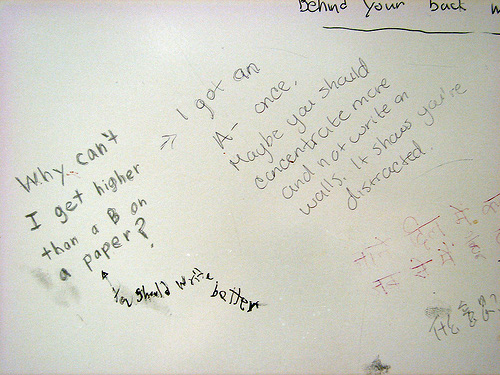 Behind your back
Why can't
I get higher
than a B on
a paper?
I got an
A- once.
Maybe you should
concentrate more
and not write on
walls. It shows you're
distracted.
You should write better